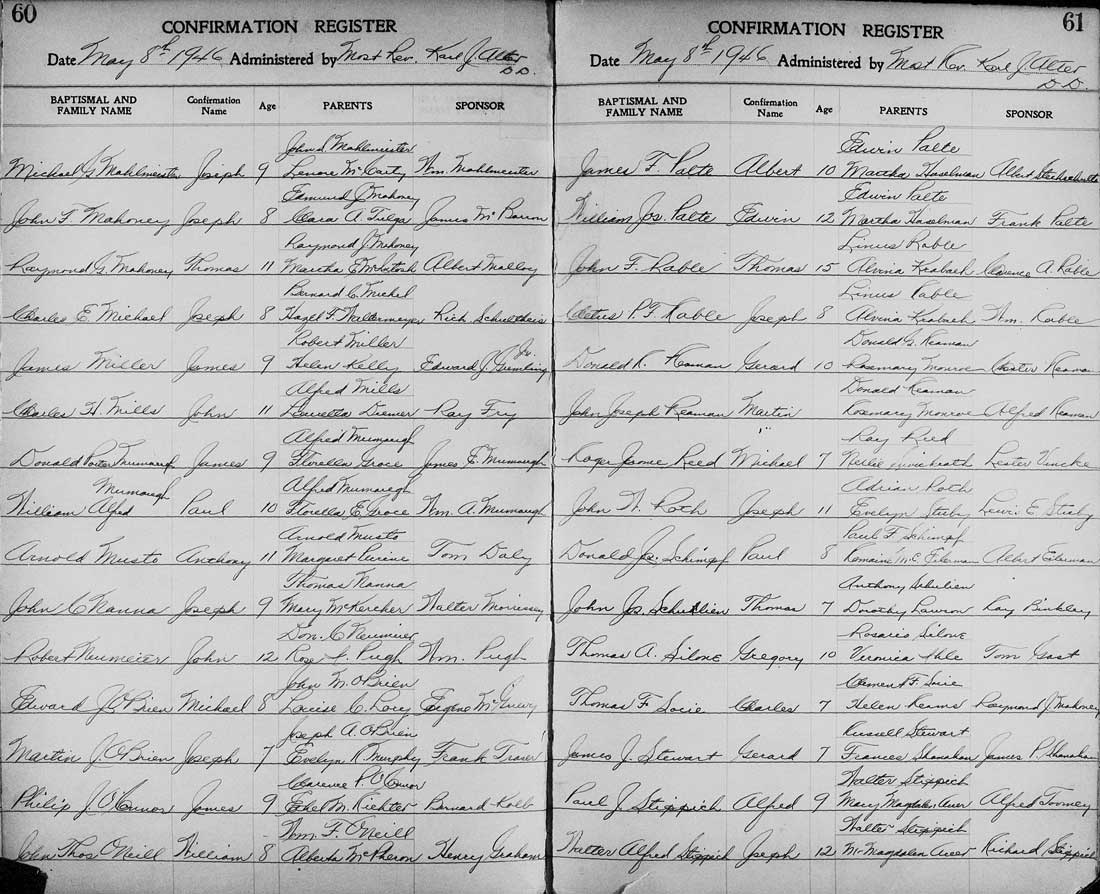 60
CONFIRMATION REGISTER
Date May 8th 1946 Administered by Most Rev. Karl J. Alter D.D.
BAPTISMAL AND FAMILY NAME Confirmation Name Age PARENTS SPONSOR
John S Mahlmeister
Michael G Mahlmeister Joseph 9 Lenore McCarty Wm. Mahlmeister
Edmund J. Mahoney
John F. Mahoney Joseph 8 Clara A. James
Raymond J. Mahoney
Raymond G. Mahoney Thomas 11 Martha E. McIntosh Albert Malloy
Bernard C. Michel
Charles E. Michael Joseph 8 Hazel F. Waltermeyer Rich. Schultheis
Robert Miller
James Miller James 9 Helen Kelly Edward J. Gremling Jr.
Alfred Mills
Charles H. Mills John 11 Louella Diemer Ray Fry
Alfred Mumaugh
Donald Porter Mumaugh James 9 Florella Groce James E. Mumaugh
Mumaugh Alfred Mumaugh
William Alfred Paul 10 Florella E. Groce Wm. A. Mumaugh
Arnold Musto
Arnold Musto Anthony 11 Margaret Perine Tom Daley
Thomas Nanna
John C Nanna Joseph 9 Mary McKercher Walter Morrissey
Don. C Neumeier
Robert Neumeier John 12 Rose Pugh Wm. Pugh
John M. O'Brien
Edward J. O'Brien Michael 8 Louise C. Lory Eugene
Joseph A. O'Brien
Martin J. O'Brien Joseph 7 Evelyn R. Murphy Frank
Clarence P. O'Connor
Philip J. O'Connor James 9 Ethel M. Richter Bernard Kolb
Wm. F. O'Neill
John Thos O'Neill William 8 Alberta McPheron Henry Graham
61
CONFIRMATION REGISTER
Date May 8th 1946 Administered by Most Rev. Karl J. Alter D.D.
BAPTISMAL AND FAMILY NAME Confirmation Name Age PARENTS SPONSOR
Edwin Palte
James F. Palte Albert 10 Martha Haselman Albert
Edwin Palte
William Jos. Palte Edwin 12 Martha Haselman Frank Palte
Linus Rable
John F. Rable Thomas 15 Alvina Krabach Clarence A. Rable
Linus Rable
Cletus P. F Rable Joseph 8 Alvina Krabach Wm. Rable
Donald G. Reaman
Donald R. Reaman Gerard 10 Rosemary Monroe Chester Reaman
Donald Reaman
John Joseph Reaman Martin " Rosemary Monroe Alfred Reaman
Ray Ried
Roger Jerome Reed Michael 7 Nellie Lester Vincke
Adrian Roth
John W. Roth Joseph 11 Evelyn Stuby Lewis E. Stuby
Paul F. Schimpf
Donald Jos. Schimpf Paul 8 Romaine M. E. Eilerman Albert Eilerman
Anthony Schulien
John Jos. Schulien Thomas 7 Dorothy Lawson Ray Binkley
Rosario Silone
Thomas A. Silone Gregory 10 Veronica Ihle Tom Gast
Clement F. Soie
Thomas F. Socie Charles 7 Helen Reams Raymond J. Mahoney
Russell Stewart
James J. Stewart Gerard 7 Frances Shanahan James P. Shanahan
Walter Stippich
Paul J. Stippich Alfred 9 Mary Magdalen Auer Alfred Toomey
Walter Stippich
Walter Alfred Stippich Joseph 12 M. Magdalen Auer Richard Stippich